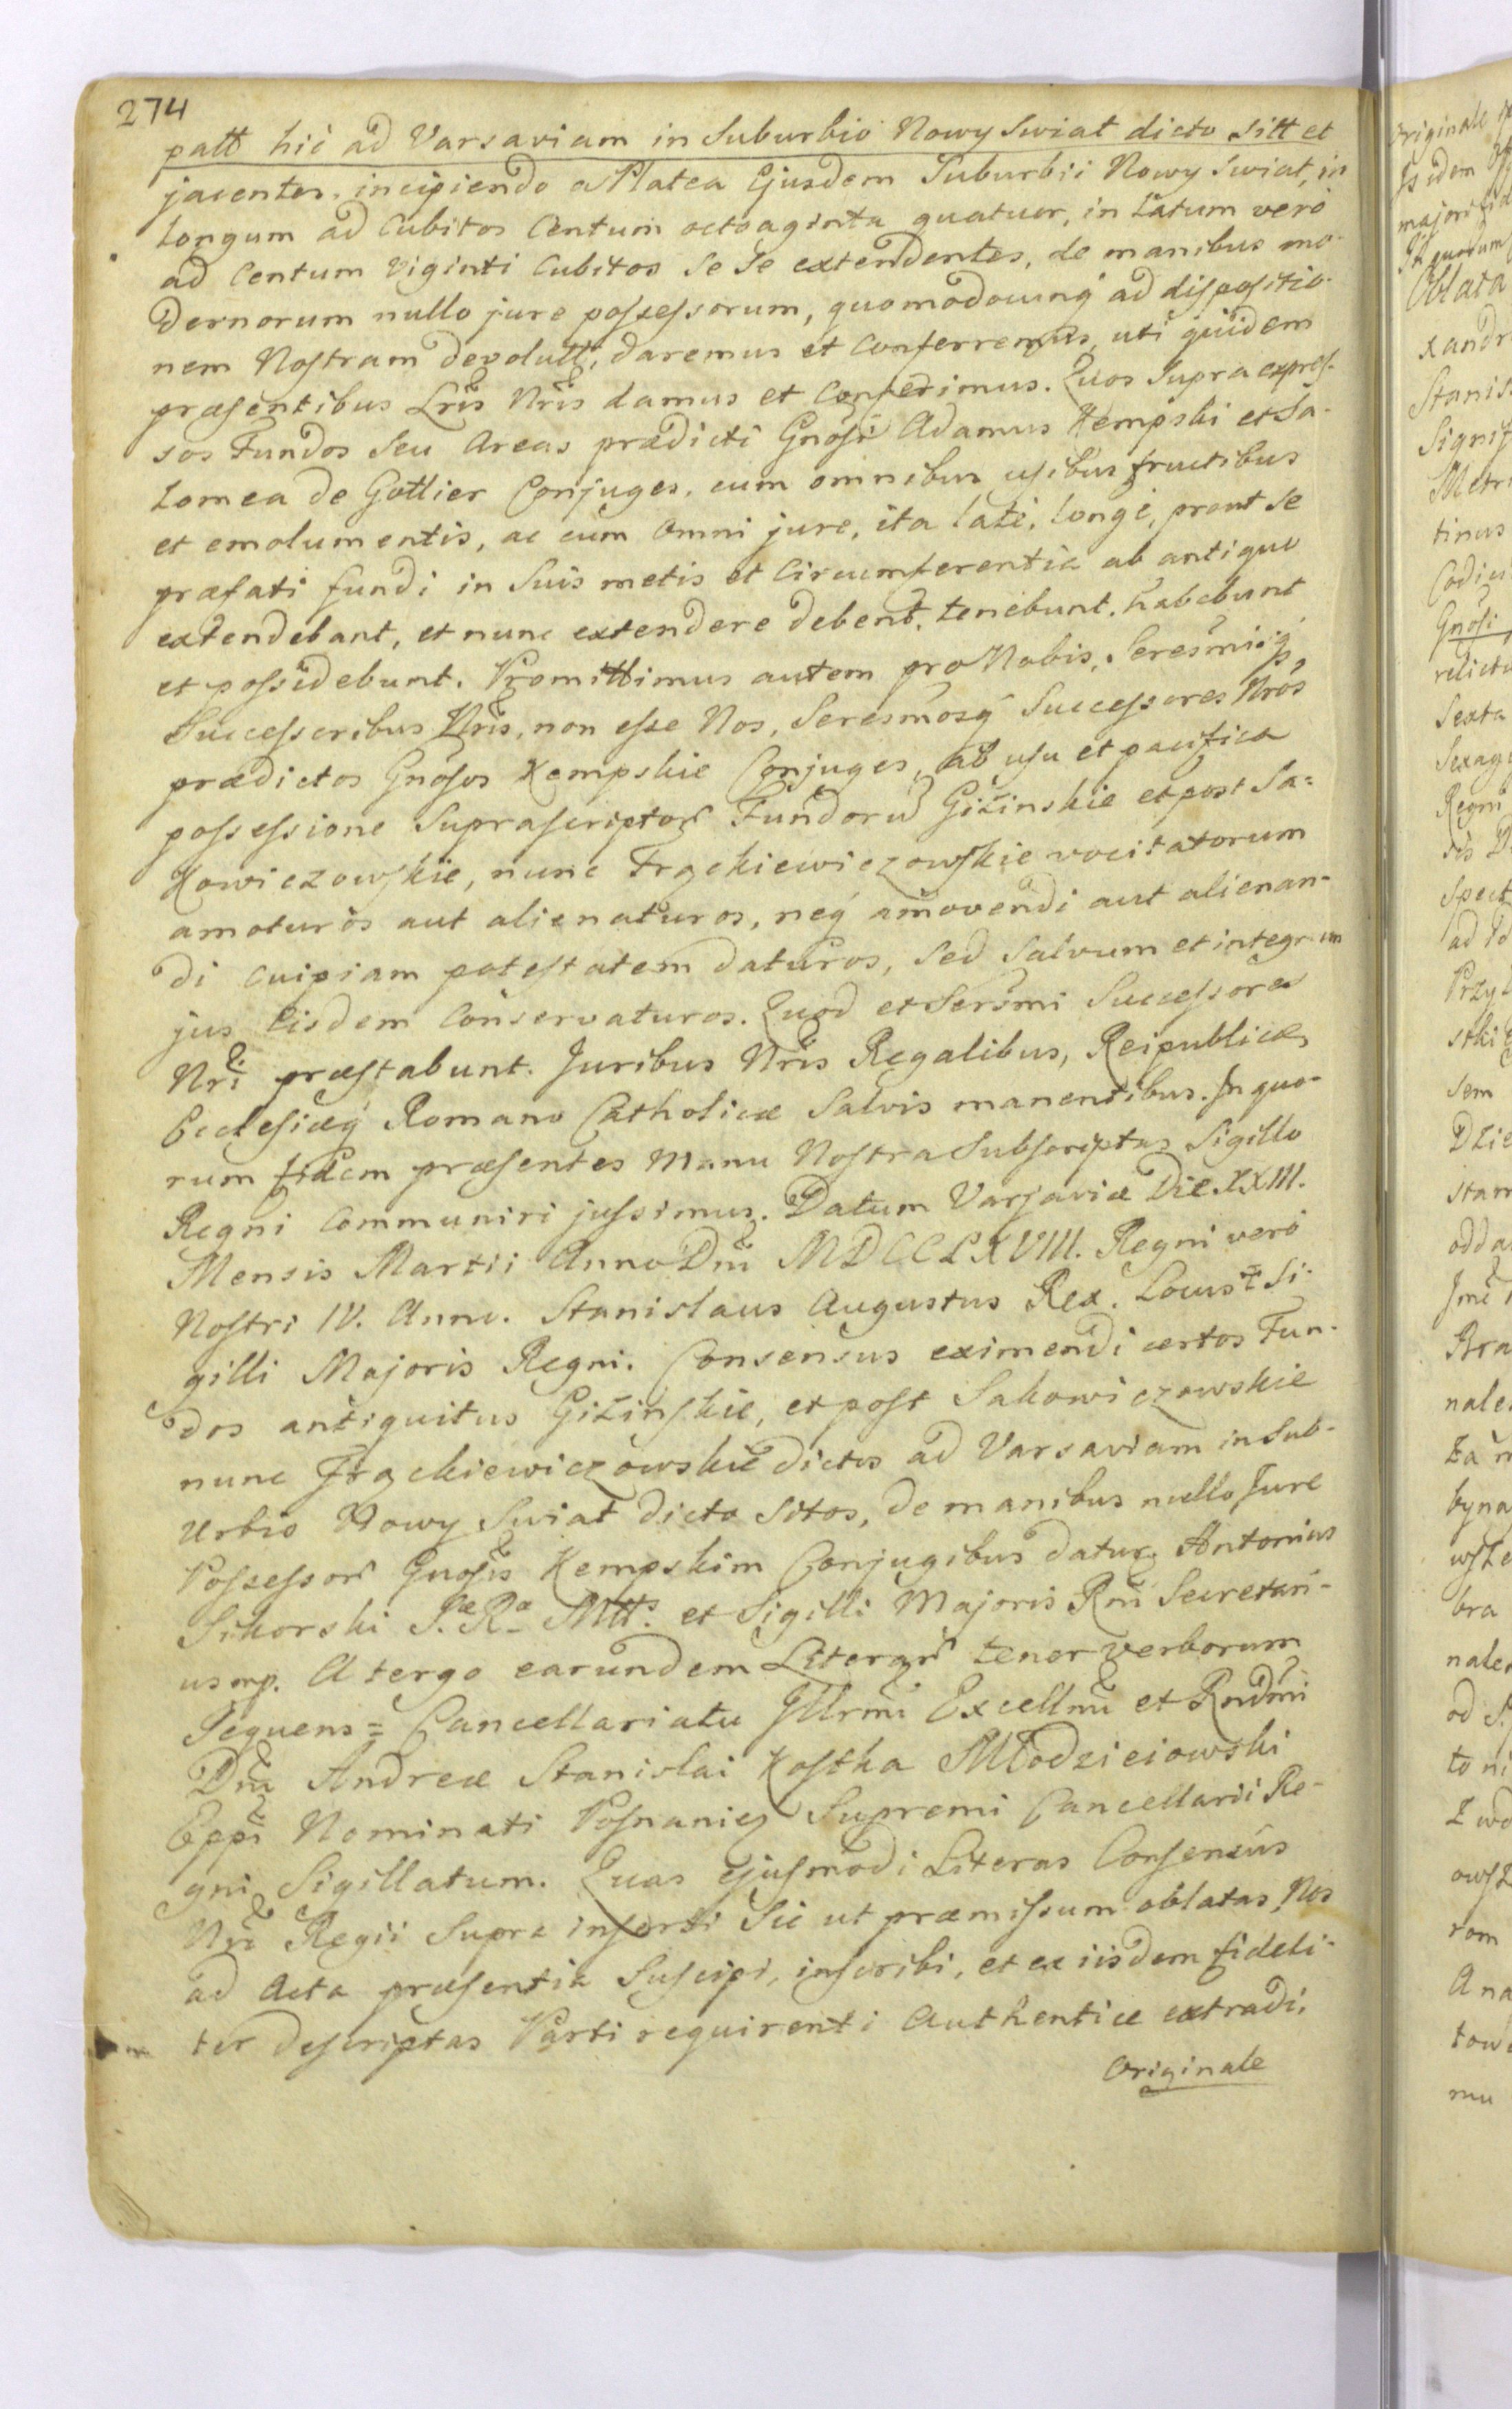 274
patt hic ad Varsaviam in Suburbio Nowy Swiat dicto sitt et
jacentes, incipiendo a Platea Ejusdem Suburbii Nowy Swiat, in
Longum ad Cubitos Centum octoaginta quatuor, in Latum vero
ad Centum viginti Cubitos se se extendentes, de manibus mo-
dernorum nullo jure possessorum, quomodocunq ad dispositio-
nem Nostram devolutt, daremus et Conferremus, uti quidem
præsentibus Lris Nris damus et Conferimus. Quos Supra expres-
sos Fundos Seu Areas prædicti Gnosi Adamus Kempski et Sa-
lomea de Gottier Conjuges, cum omnibus usibus fructibus
et emolumentis, ac cum Omni jure, ita late, longe, prout se
præfati fundi in Suis metis et Circumferentia ab antiquo
extendebant, et nunc extendere debent, tenebunt, habebunt
et possidebunt. Promittimus autem pro Nobis, Seresmisq
Successoribus Nris, non esse Nos, Seresmosq Successores Nros
prædictos Gnosos Kempskie Conjuges, ab usu et pacifica
possessione Suprascriptor Fundoru Giżinskie et post Sa-
kowiczowskie, nunc Frąckiewiczowskie vocitatorum
amoturos aut alienaturos, neq amovendi aut alienan-
di cuipiam potestatem daturos, sed Salvum et integrum
jus Eisdem Conservaturos. Quod et Sersmi Successores
Nri præstabunt. Juribus Nris Regalibus, Reipublicæ,
Ecclesiæq Romano Catholicæ Salvis manentibus. In quo-
rum fidem præsentes Manu Nostra Subscriptas Sigillo
Regni Communiri jussimus. Datum Varsaviæ Die XXIII.
Mensis Martii Anno Dni MDCCLXVIII. Regni vero
Nostri IV. Anno. Stanislaus Augustus Rex. Locus Si-
gilli Majoris Regni. Consensus eximendi certos Fun-
dos antiquitus Giżinskie, et post Sakowiczowskie
nunc Frąckiewiczowskie dictos ad Varsaviam in Sub-
urbio Nowy Swiat dicto Sitos, de manibus nullo Jure
Possessor Gnosis Kempskim Conjugibus datur. Antonius
Sikorski S. Ræ Mtts. et Sigilli Majoris Rni Secretari-
us mp. A tergo earundem Literar tenor verborum
Sequens = Cancellariatu Illrmi Excellmi et Rndmi
Dni Andreæ Stanislai Kostka Młodzieiowski
Eppi Nominati Posnanien Supremi Cancellarii Re-
gni Sigillatum. Quas ejusmodi Literas Consensûs
Nri Regii Supra inserti Sic ut præmissum oblatas, Nos
ad Acta præsentia Suscipi, inscribi, et ex iisdem fideli-
ter descriptas Parti requirenti Authentice extradi,
Originale
Originale
Isdem
majori
Oblata
xandr
Stanis
Signif
Metri
tinus
Codici
Gnosi
relicta
Sexta
Sexag
Regni
Spect
ad Id
Przyl
stki
sem
Dzie
stam
odda
Jmć
Bra
nale
za
byna
wsze
bra
nale
od
to ni
z wo
owsz
rom
Ana
tow
mu